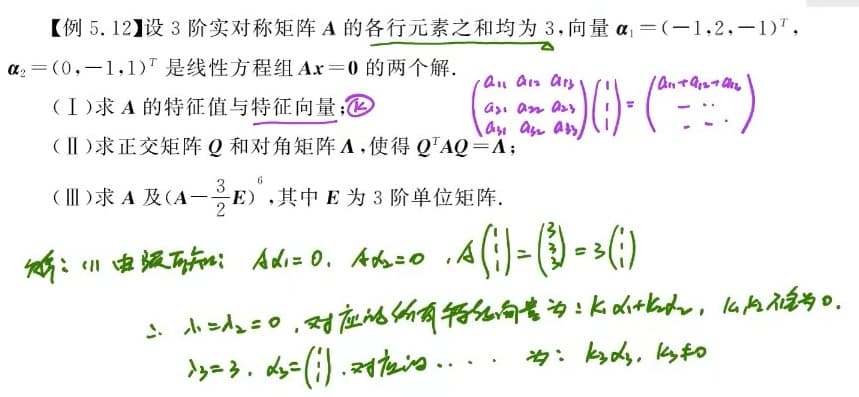 【例 5.12】设 3 阶实对称矩阵 A 的各行元素之和均为 3,向量 α₁=(-1,2,-1)ᵀ,
α₂=(0,-1,1)ᵀ 是线性方程组 Ax=0 的两个解.
(Ⅰ)求 A 的特征值与特征向量; K
(a₁₁ a₁₂ a₁₃
a₂₁ a₂₂ a₂₃
a₃₁ a₃₂ a₃₃)(1 1 1) = (a₁₁+a₁₂+a₁₃
(Ⅱ)求正交矩阵 Q 和对角矩阵 Λ,使得 QᵀAQ=Λ;
(Ⅲ)求 A 及(A-3/2E)⁶,其中 E 为 3 阶单位矩阵.
解: (1) 由题可知: Aα₁=0, Aα₂=0, A(1 1 1)=(3 3 3)=3(1 1 1)
∴ λ₁=λ₂=0, 对应的所有特征向量为: k₁α₁+k₂α₂, k₁,k₂不全为0.
λ₃=3. α₃=(1 1 1). 对应的.... 为: k₃α₃, k₃≠0